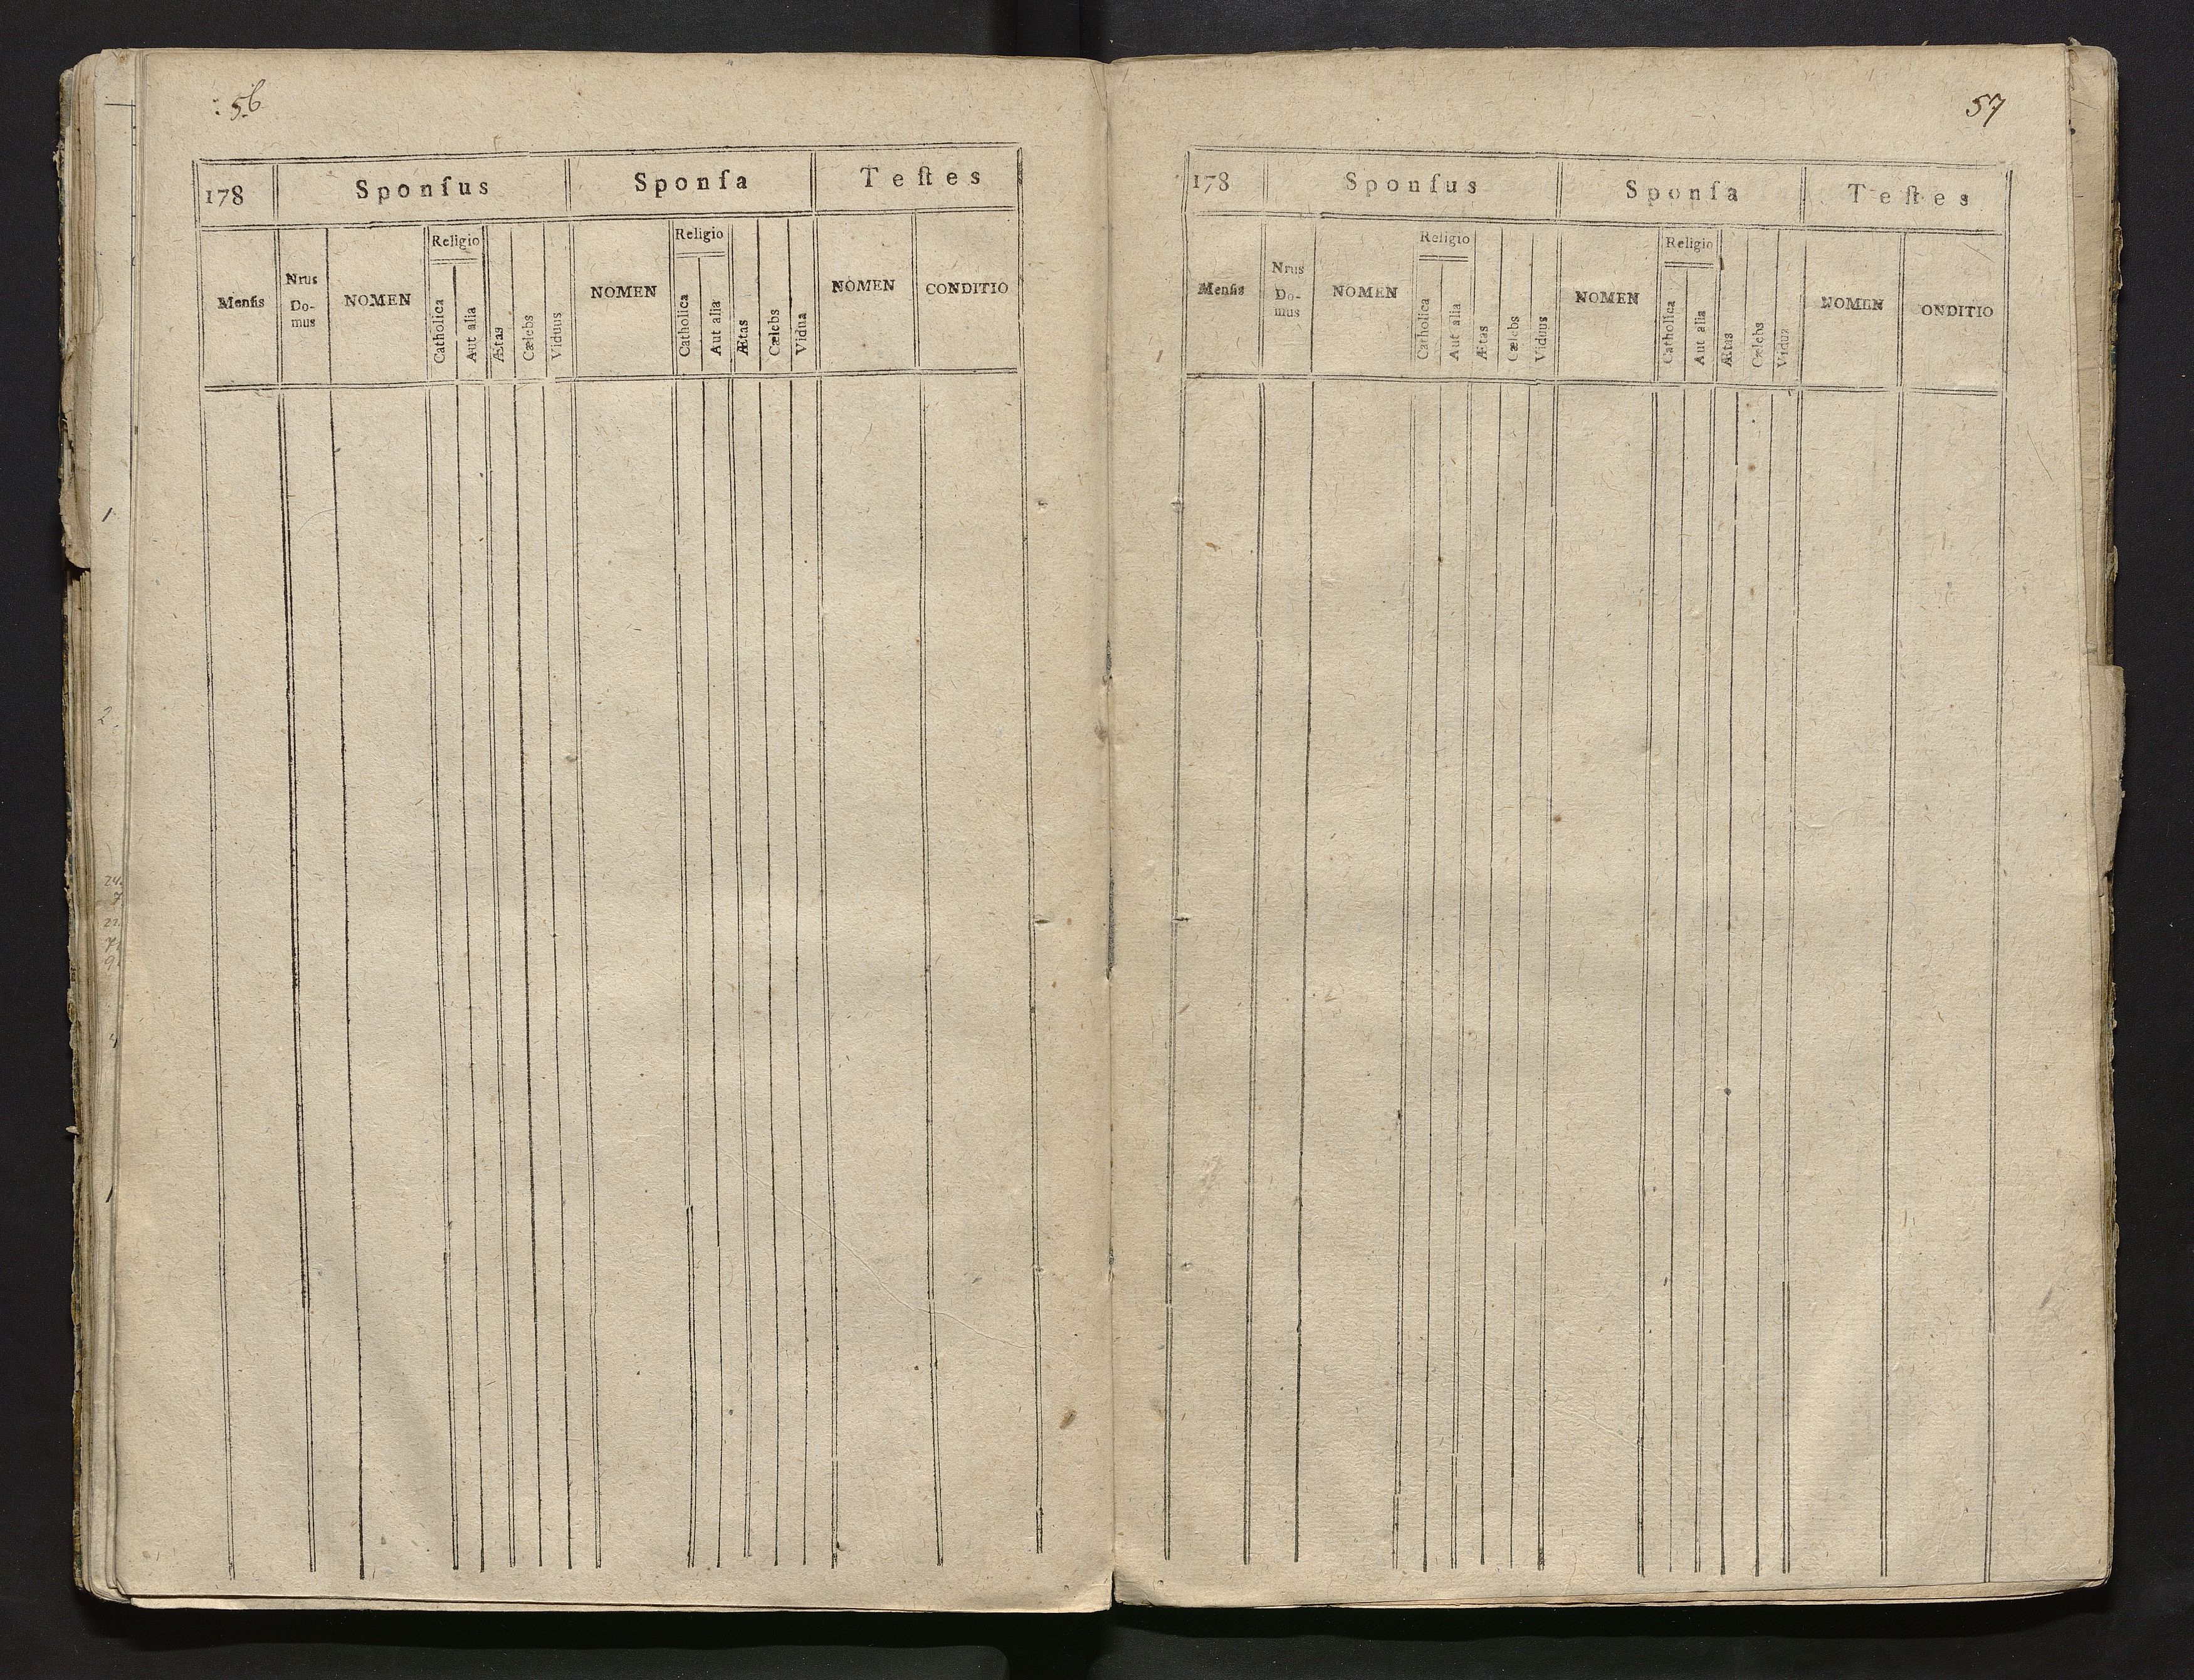 56
178 Sponſus Sponſa Teſtes
Menſis Nrus Do-mus NOMEN Religio Catholica Aut alia Ætas Cælebs Viduus NOMEN Religio Catholica Aut alia Ætas Cælebs Vidua NOMEN CONDITIO
57
178 Sponſus Sponſa Teſtes
Menſis Nrus Do-mus NOMEN Religio Catholica Aut alia Ætas Cælebs Viduus NOMEN Religio Catholica Aut alia Ætas Cælebs Vidua NOMEN ONDITIO